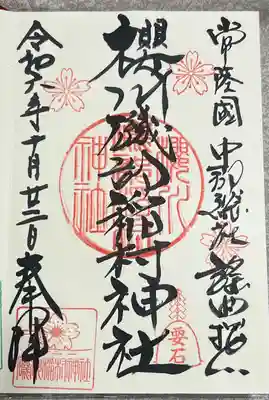 常陸國 中郡總社 謡曲桜川
櫻川磯部稲村神社
要石
令和六年十月廿二日 奉拝